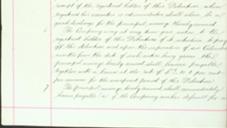 receipt of the registered holder of this Debenture whose
registered his executors or administrators shall alone be a
good discharge for the principal moneys thereby secured
6 The Company may at any time give notice to the
registered holder of this Debenture of its intention to pay
off the debenture and upon the expiration of six Calendar
months from the date of such notice being given the
principal moneys hereby secured shall become payable
together with interest at the rate of per cent
per annum for the
7 The principal moneys hereby secured shall immediately
become payable if the Company makes default for